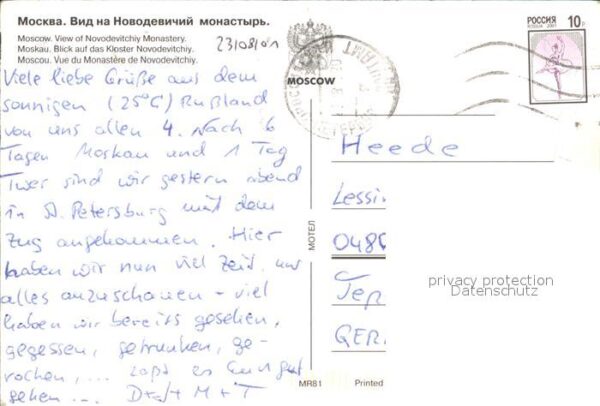 Москва. Вид на Новодевичий монастырь.
Moscow. View of Novodevitchiy Monastery.
Moskau. Blick auf das Kloster Novodevitchiy.
Moscou. Vue du Monastère de Novodevitchiy.
23/08/01
MOSCOW
РОССИЯ
10р
Viele liebe Grüße aus dem
sonnigen (25°C) Rußland
von uns allen 4. Nach 6
Tagen Moskau und 1 Tag
Twer sind wir gestern abend
in St. Petersburg mit dem
Zug angekommen. Hier
haben wir nun viel Zeit, uns
alles anzuschauen - viel
haben wir bereits gesehen,
gegessen, getrunken, ge-
rochen, ... Laßt es Euch gut
gehen ... D+J+M+T
МОТЕЛ
MR81
Printed
Heede
Lessi
048
Tep
GER
privacy protection
Datenschutz